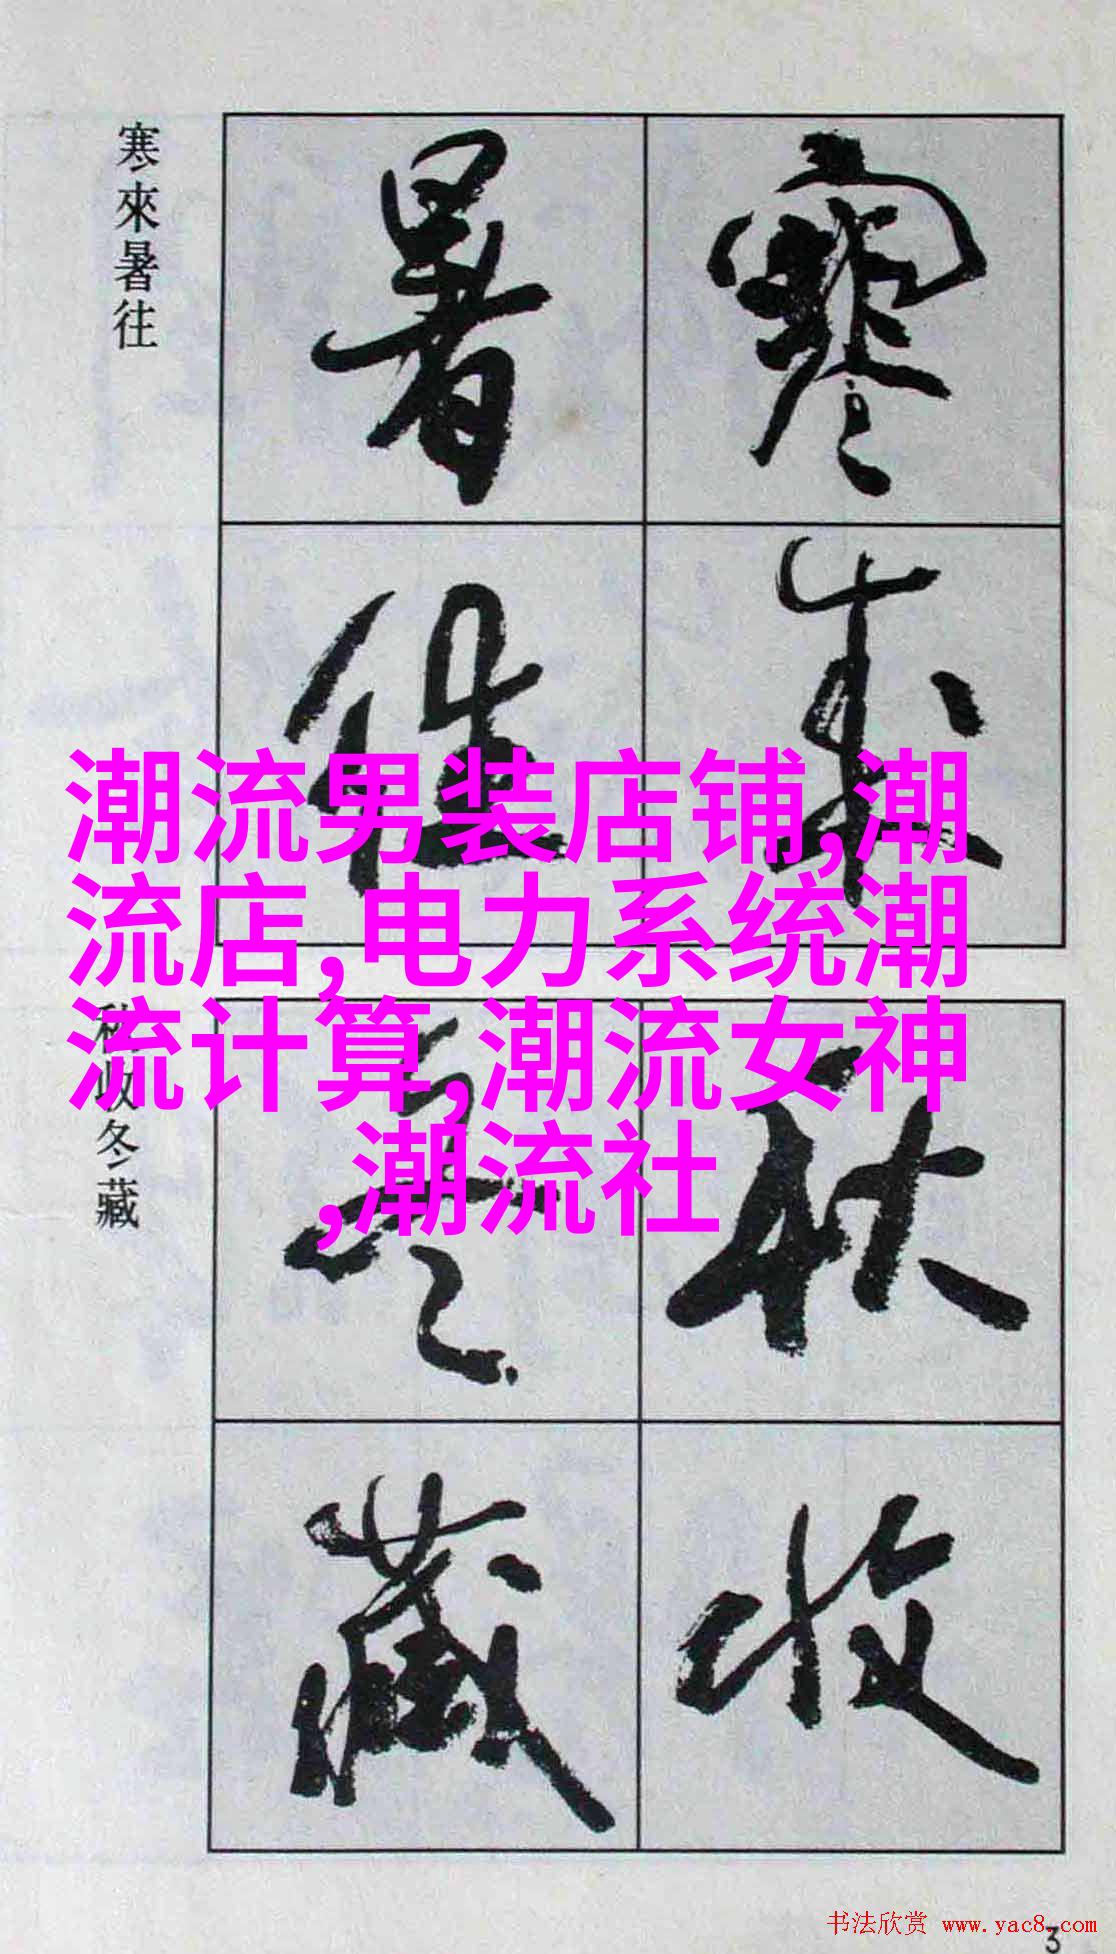 寒來暑往
寒
來
暑
往
潮流男装店铺,潮
流店,电力系统潮
流计算,潮流女神
,潮流社
秋收冬藏
秋
收
冬
藏
书法欣赏 www.yac8.com
3